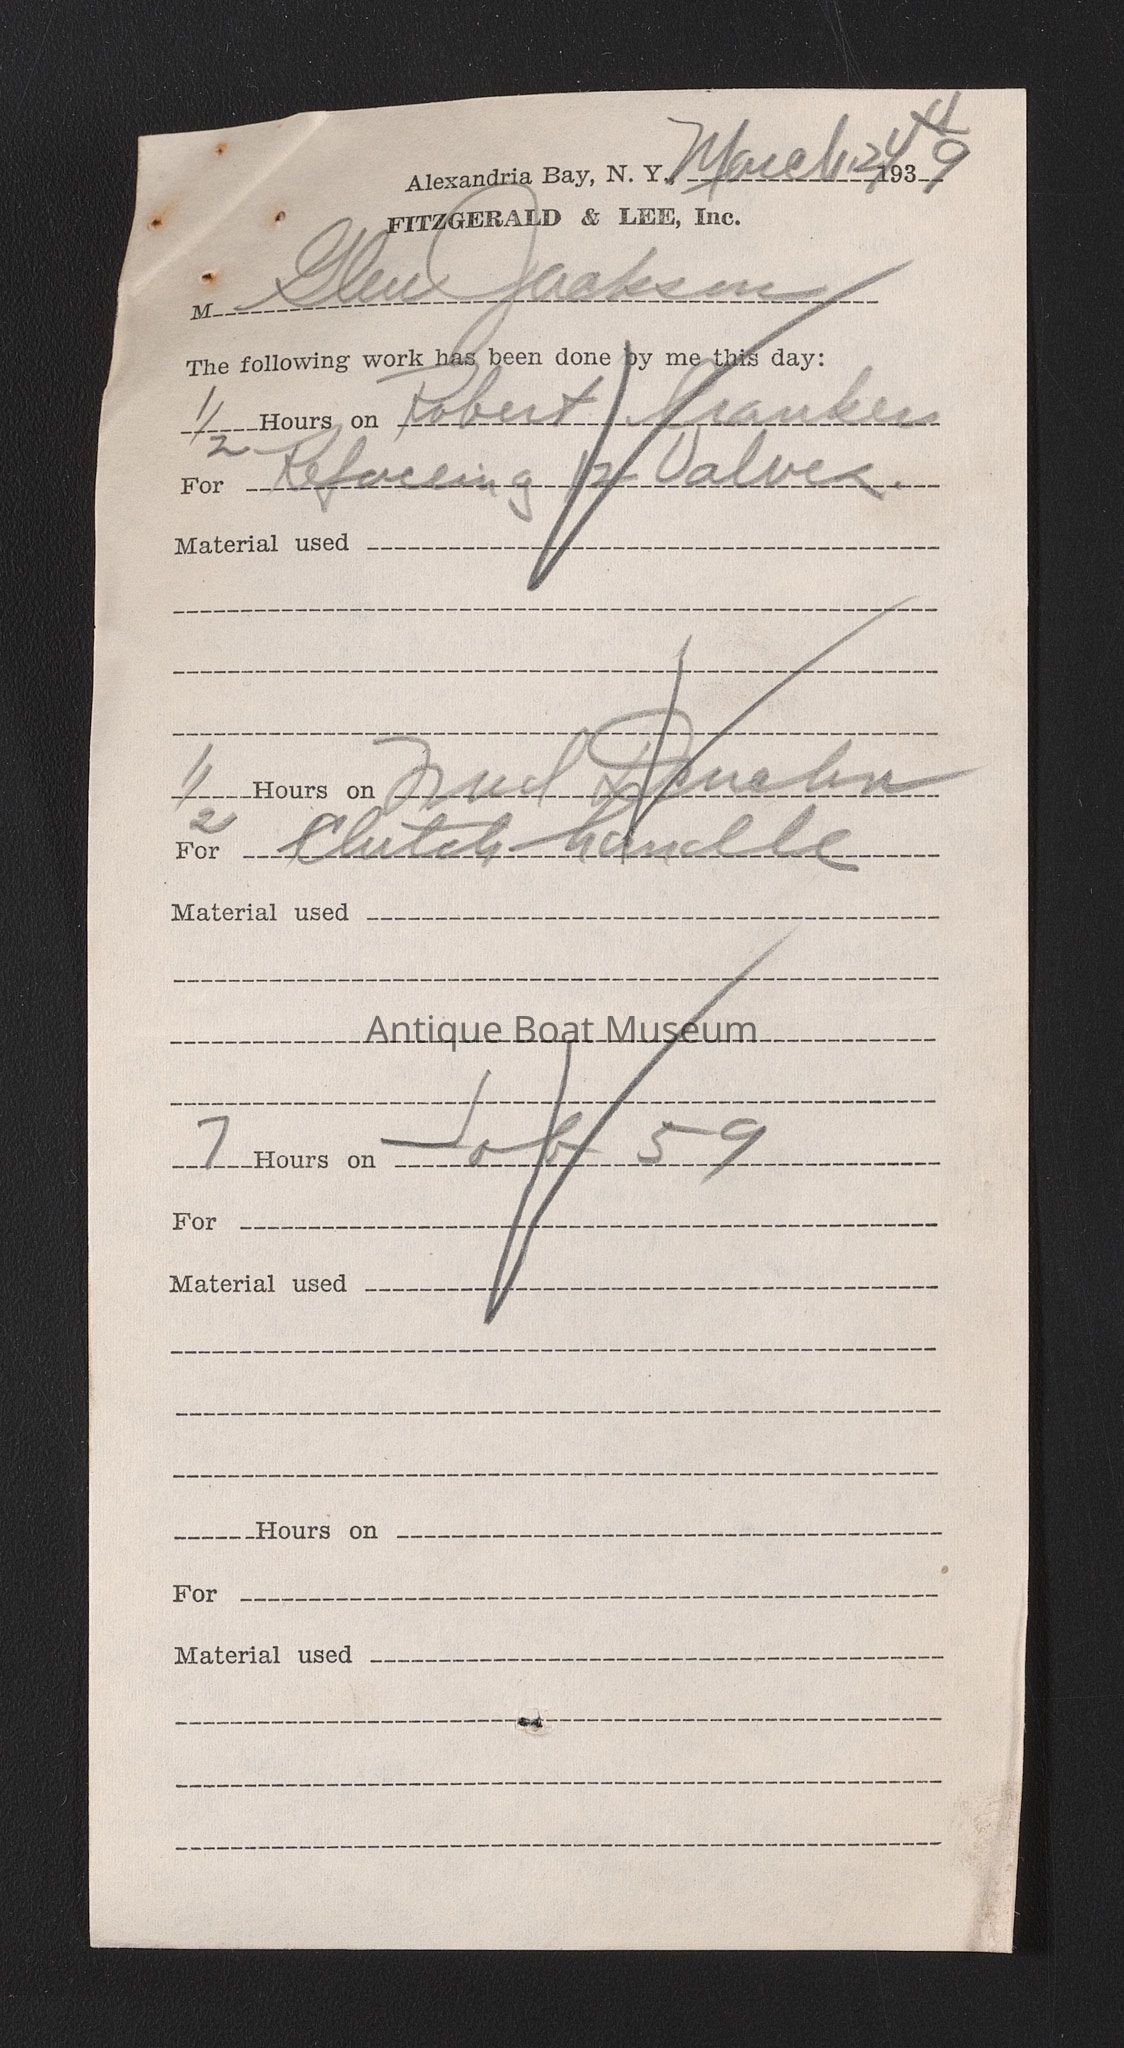 Alexandria Bay, N. Y., March 24 1939
FITZGERALD & LEE, Inc.
M Glen Jackson
The following work has been done by me this day:
1/2 Hours on Robert
For Refaceing 12 Valves.
Material used
1/2 Hours on Fred
For Clutch handle
Material used
Antique Boat Museum
7 Hours on Job 59
For
Material used
Hours on
For
Material used